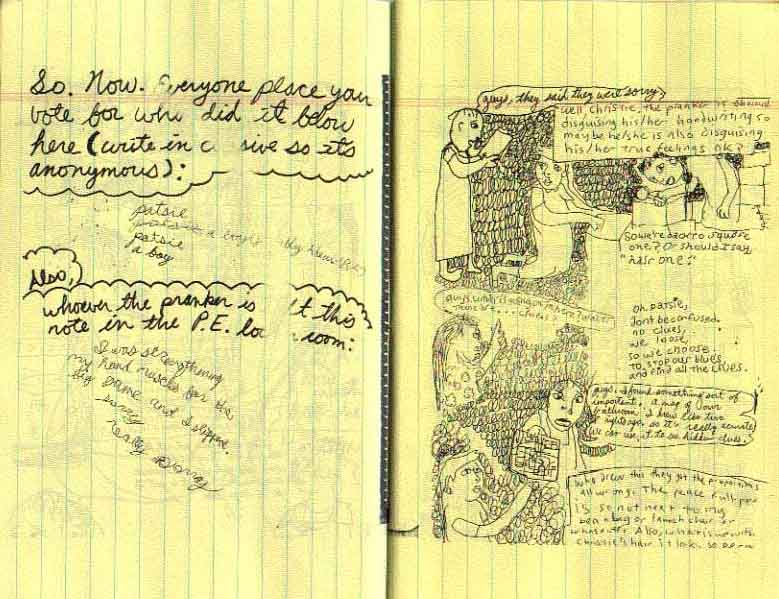 So. Now. Everyone place your
vote for who did it below
here (write in c sive so it's
anonymous):
patsie
patsie
a boy
Also,
whoever the pranker is t this
note in the P.E. lo room:
I was strengthening
my hand muscles for the
big game and I slipped.
sorry
really sorry
guys, they said they were sorry,
well christie, the pranker is
disguising his/her handwriting so
maybe he/she is also disguising
his/her true feelings ok?
So we're back to square
one? Or should I say
"hair one?"
oh patsie,
dont be confused.
no clues,
we loose
so we choose
to stop our blues
and find all the clues.
guys. I found something sort of
important. A map of
I drew like two
nights ago, so it's really accurate
we can use it to see hidden clues.
who drew this they got the proportions
all wrong. The peace full
is so not next to my
bean bag or lamch chair or
whatever. Also, what is up with
christie's hair it look so